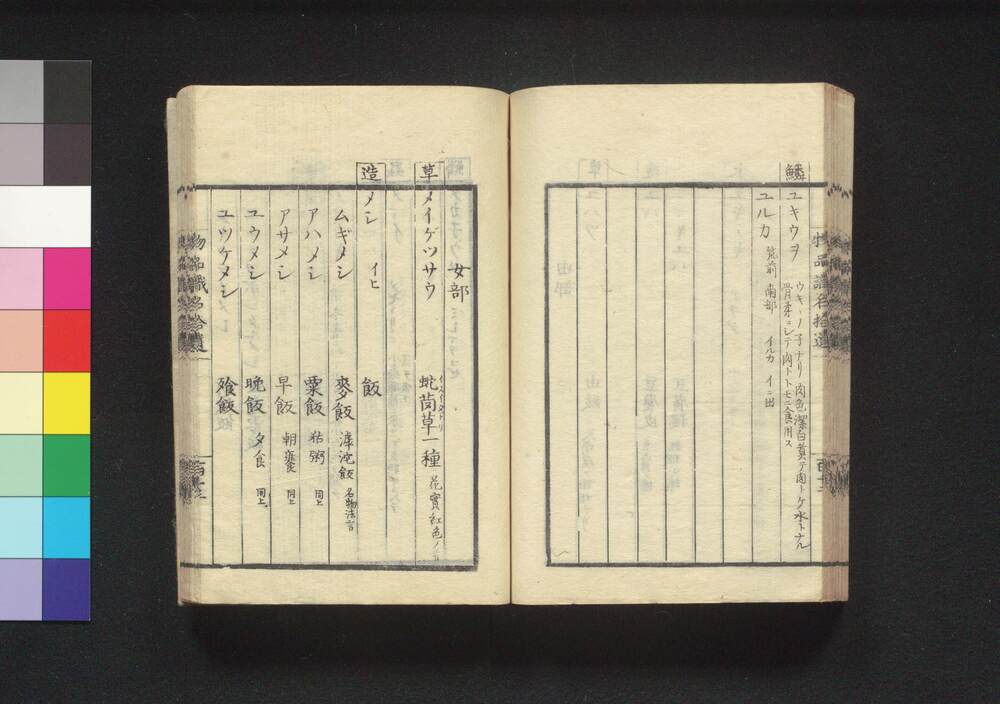 鱗
ユキウヲ
ウキヽノ子ナリ肉色潔白煑テ肉トケ水トナル
骨柔ニシテ肉トトモニ食用ス
ユルカ 筑前 南部 イルカ イニ出
物品識名拾遺
女部
草 メイゲツサウ
イタドリ
虎茵草一種 花實紅色ノ
造 メシ イヒ 飯
ムギメシ 麥飯 滹沱飯 名物法言
アハメシ 粟飯 粘粥 同上
アサメシ 早飯 朝饔 同上
ユウメシ 晩飯 夕食 同上
ユツケメシ 飱飯
物品識名拾遺